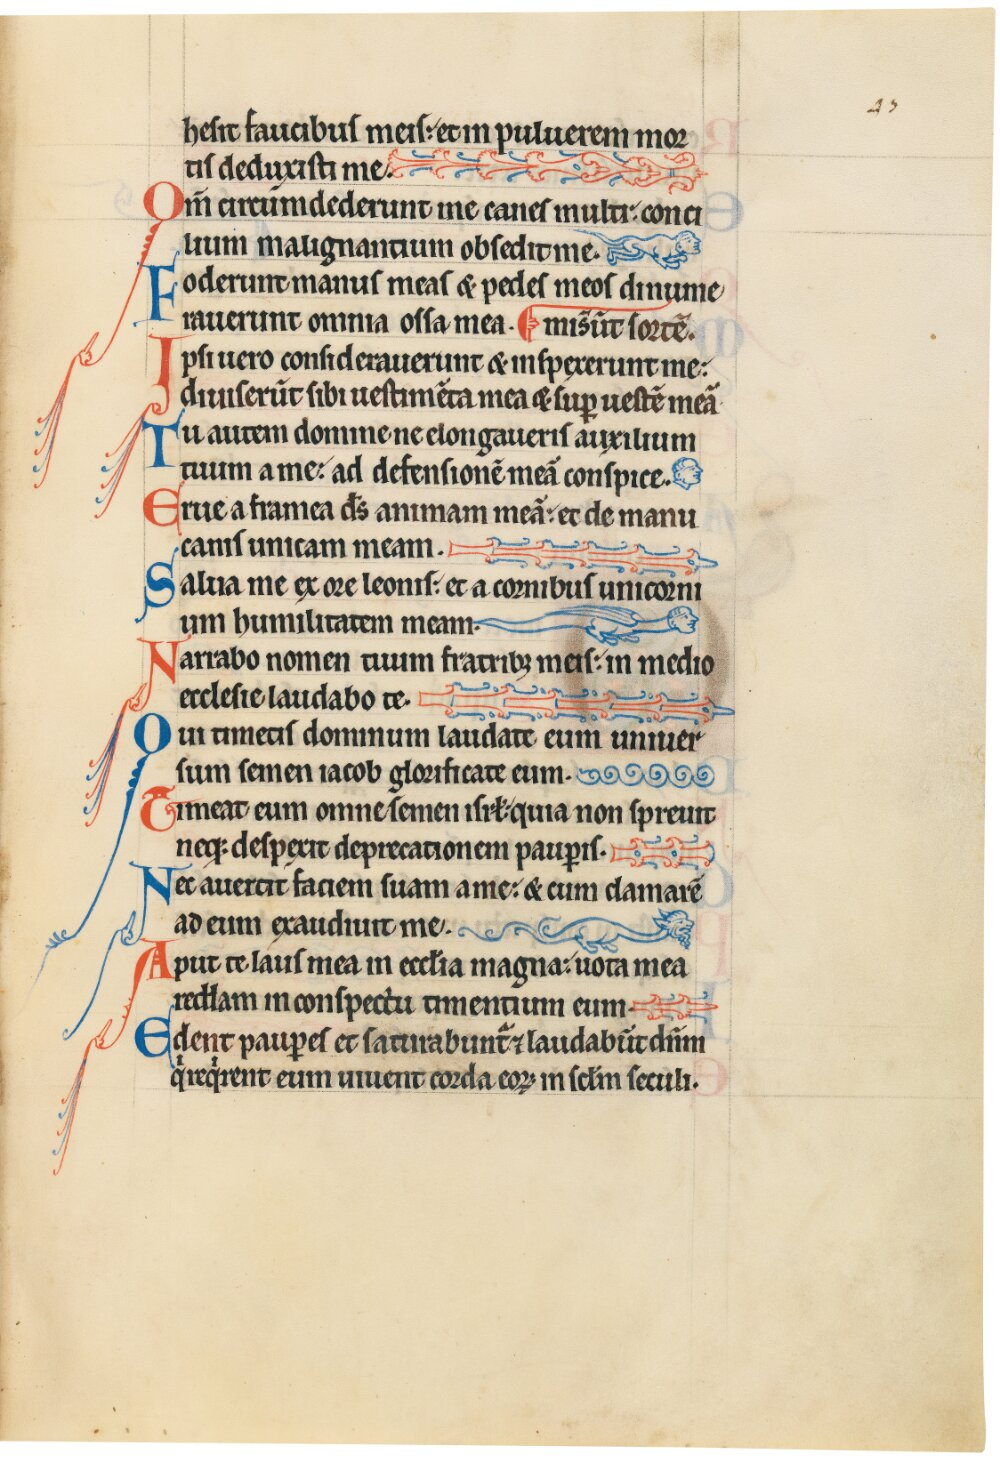 43
hesit faucibus meis: et in puluerem mor
tis deduxisti me.
Qm̄ circūmdederunt me canes multi: conci
lium malignantium obsedit me.
Foderunt manus meas & pedes meos dinume
rauerunt omnia ossa mea. miser̄ūt sortē.
Ipsi uero considerauerunt & inspexerunt me:
diuiserūt sibi uestimēta mea & suꝑ uestē meā
Tu autem domine ne elongaueris auxilium
tuum a me: ad defensionē meā conspice.
Erue a framea dš animam meā: et de manu
canis unicam meam.
Salua me ex ore leonis: et a cornibus unicorni
um humilitatem meam.
Narrabo nomen tuum fratribꝫ meis: in medio
ecclesie laudabo te.
Qui timetis dominum laudate eum uniuer
sum semen iacob glorificate eum.
Timeat eum omne semen isrł: quia non spreuit
neqꝫ despexit deprecationem pauꝑis.
Nec auertit faciem suam a me: & cum clamarē
ad eum exaudiuit me.
Aput te laus mea in eccłia magna: uota mea
reddam in conspectu timentium eum.
Edent pauꝑes et saturabunt᷑ ⁊ laudabūt dn̄m
q̇ reqͥrent eum uiuent corda eoꝝ in sclm̄ seculi.